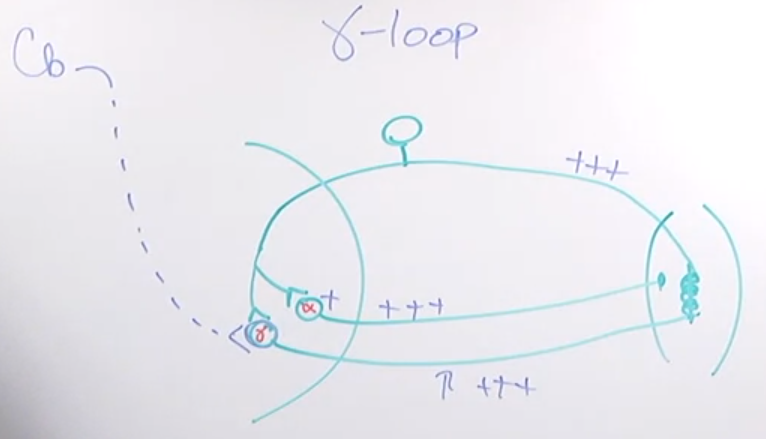 γ-loop
Cb
+++
α +
+++
γ
↑ +++